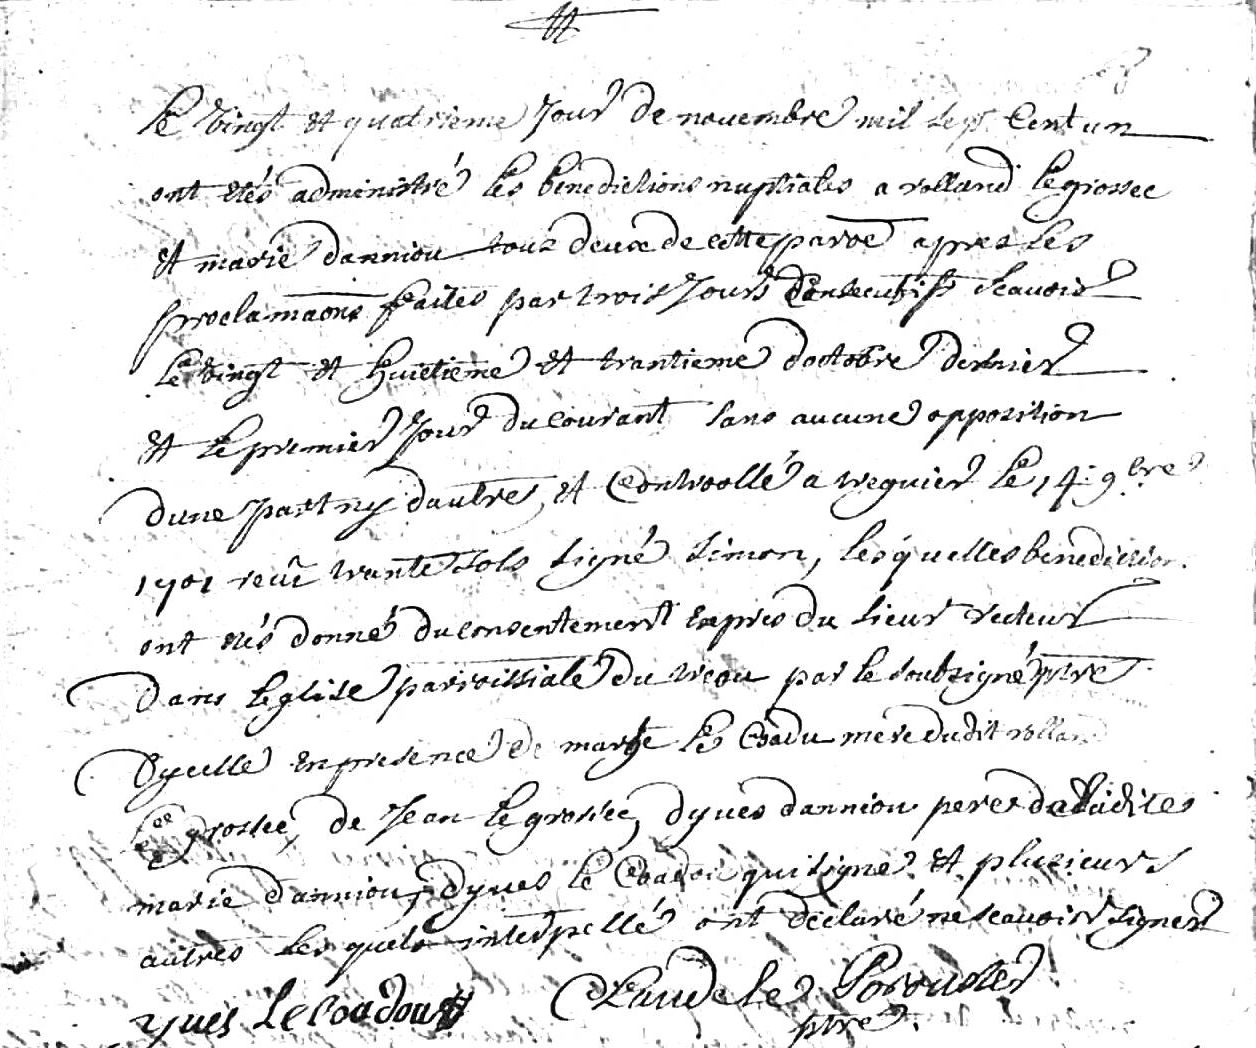 le vingt et quatrieme Jour de novembre mil sept Cent un
ont etés administré les benedictions nuptiales a rolland le grossec
et marie danniou tous deux de cette paroe apres les
proclamaons faites par trois Jours Consecutifs scavoir
le vingt et huictieme et trantieme doctobre dernier
et le premier Jour du courant sans aucune opposition
dune part ny dautre, et Controollé a treguier le 14 9bre
1701 receu trante sols signé simon, les quelles benediction
ont etés donné du consentement expres du sieur recteur
dans leglise parroissiale du treou par le soubsigné ptre
dycelle en presence de marge le Coadu mere dudit rolland
le grossec, de Jean le grossec, dyves danniou pere de laditte
marie danniou, dyves le Coadou qui signe et plusieurs
autres les quels interpellé ont declaré ne scavoir signer
yves le coadou
Claude le
ptre.